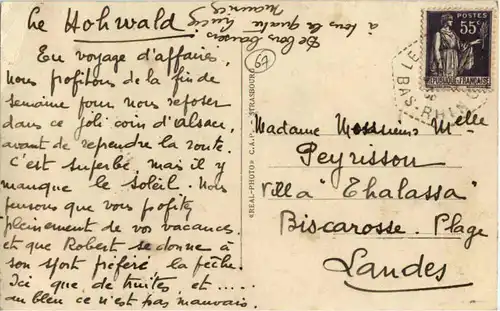 Le Hohwald
En voyage d'affaires,
nous profitons de la fin de
semaine pour nous reposer
dans ce joli coin d'alsace,
avant de reprendre la route.
C'est superbe, mais il y
manque le soleil. Nous
pensons que vous profitez
pleinement de vos vacances
et que Robert se donne à
son sport préféré la pêche.
Ici que de truites, et .....
au bleu ce n'est pas mauvais.
De bons baisers
à tous les quatre
Maurice
67
«REAL-PHOTO» C.A.P. STRASBOURG
POSTES
55c
REPUBLIQUE FRANÇAISE
BAS-RHIN
Madame Messieurs Melle
Peyrisson
Villa "Thalassa"
Biscarosse. Plage
Landes